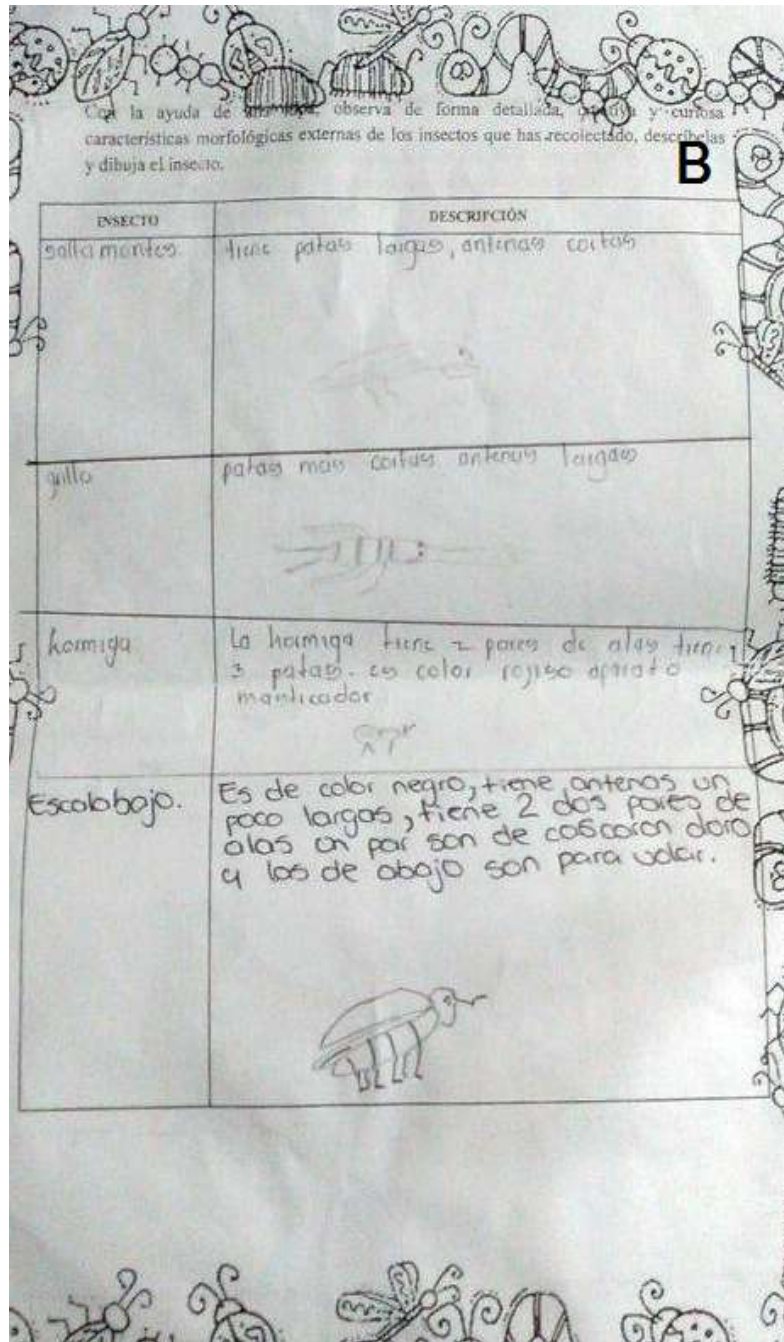 Con la ayuda de una lupa, observa de forma detallada, y curiosa
características morfológicas externas de los insectos que has recolectado, descríbelas
y dibuja el insecto.
B
INSECTO
DESCRIPCIÓN
saltamontes
tiene patas largas, antenas cortas
grillo
patas mas cortas antenas largas
hormiga
La hormiga tiene 2 pares de alas tiene
3 patas. es color rojiso aparato
manticador
Escolobajo.
Es de color negro, tiene antenas un
poco largas, tiene 2 dos pares de
alas un par son de coscaron doro
y los de abajo son para volar.